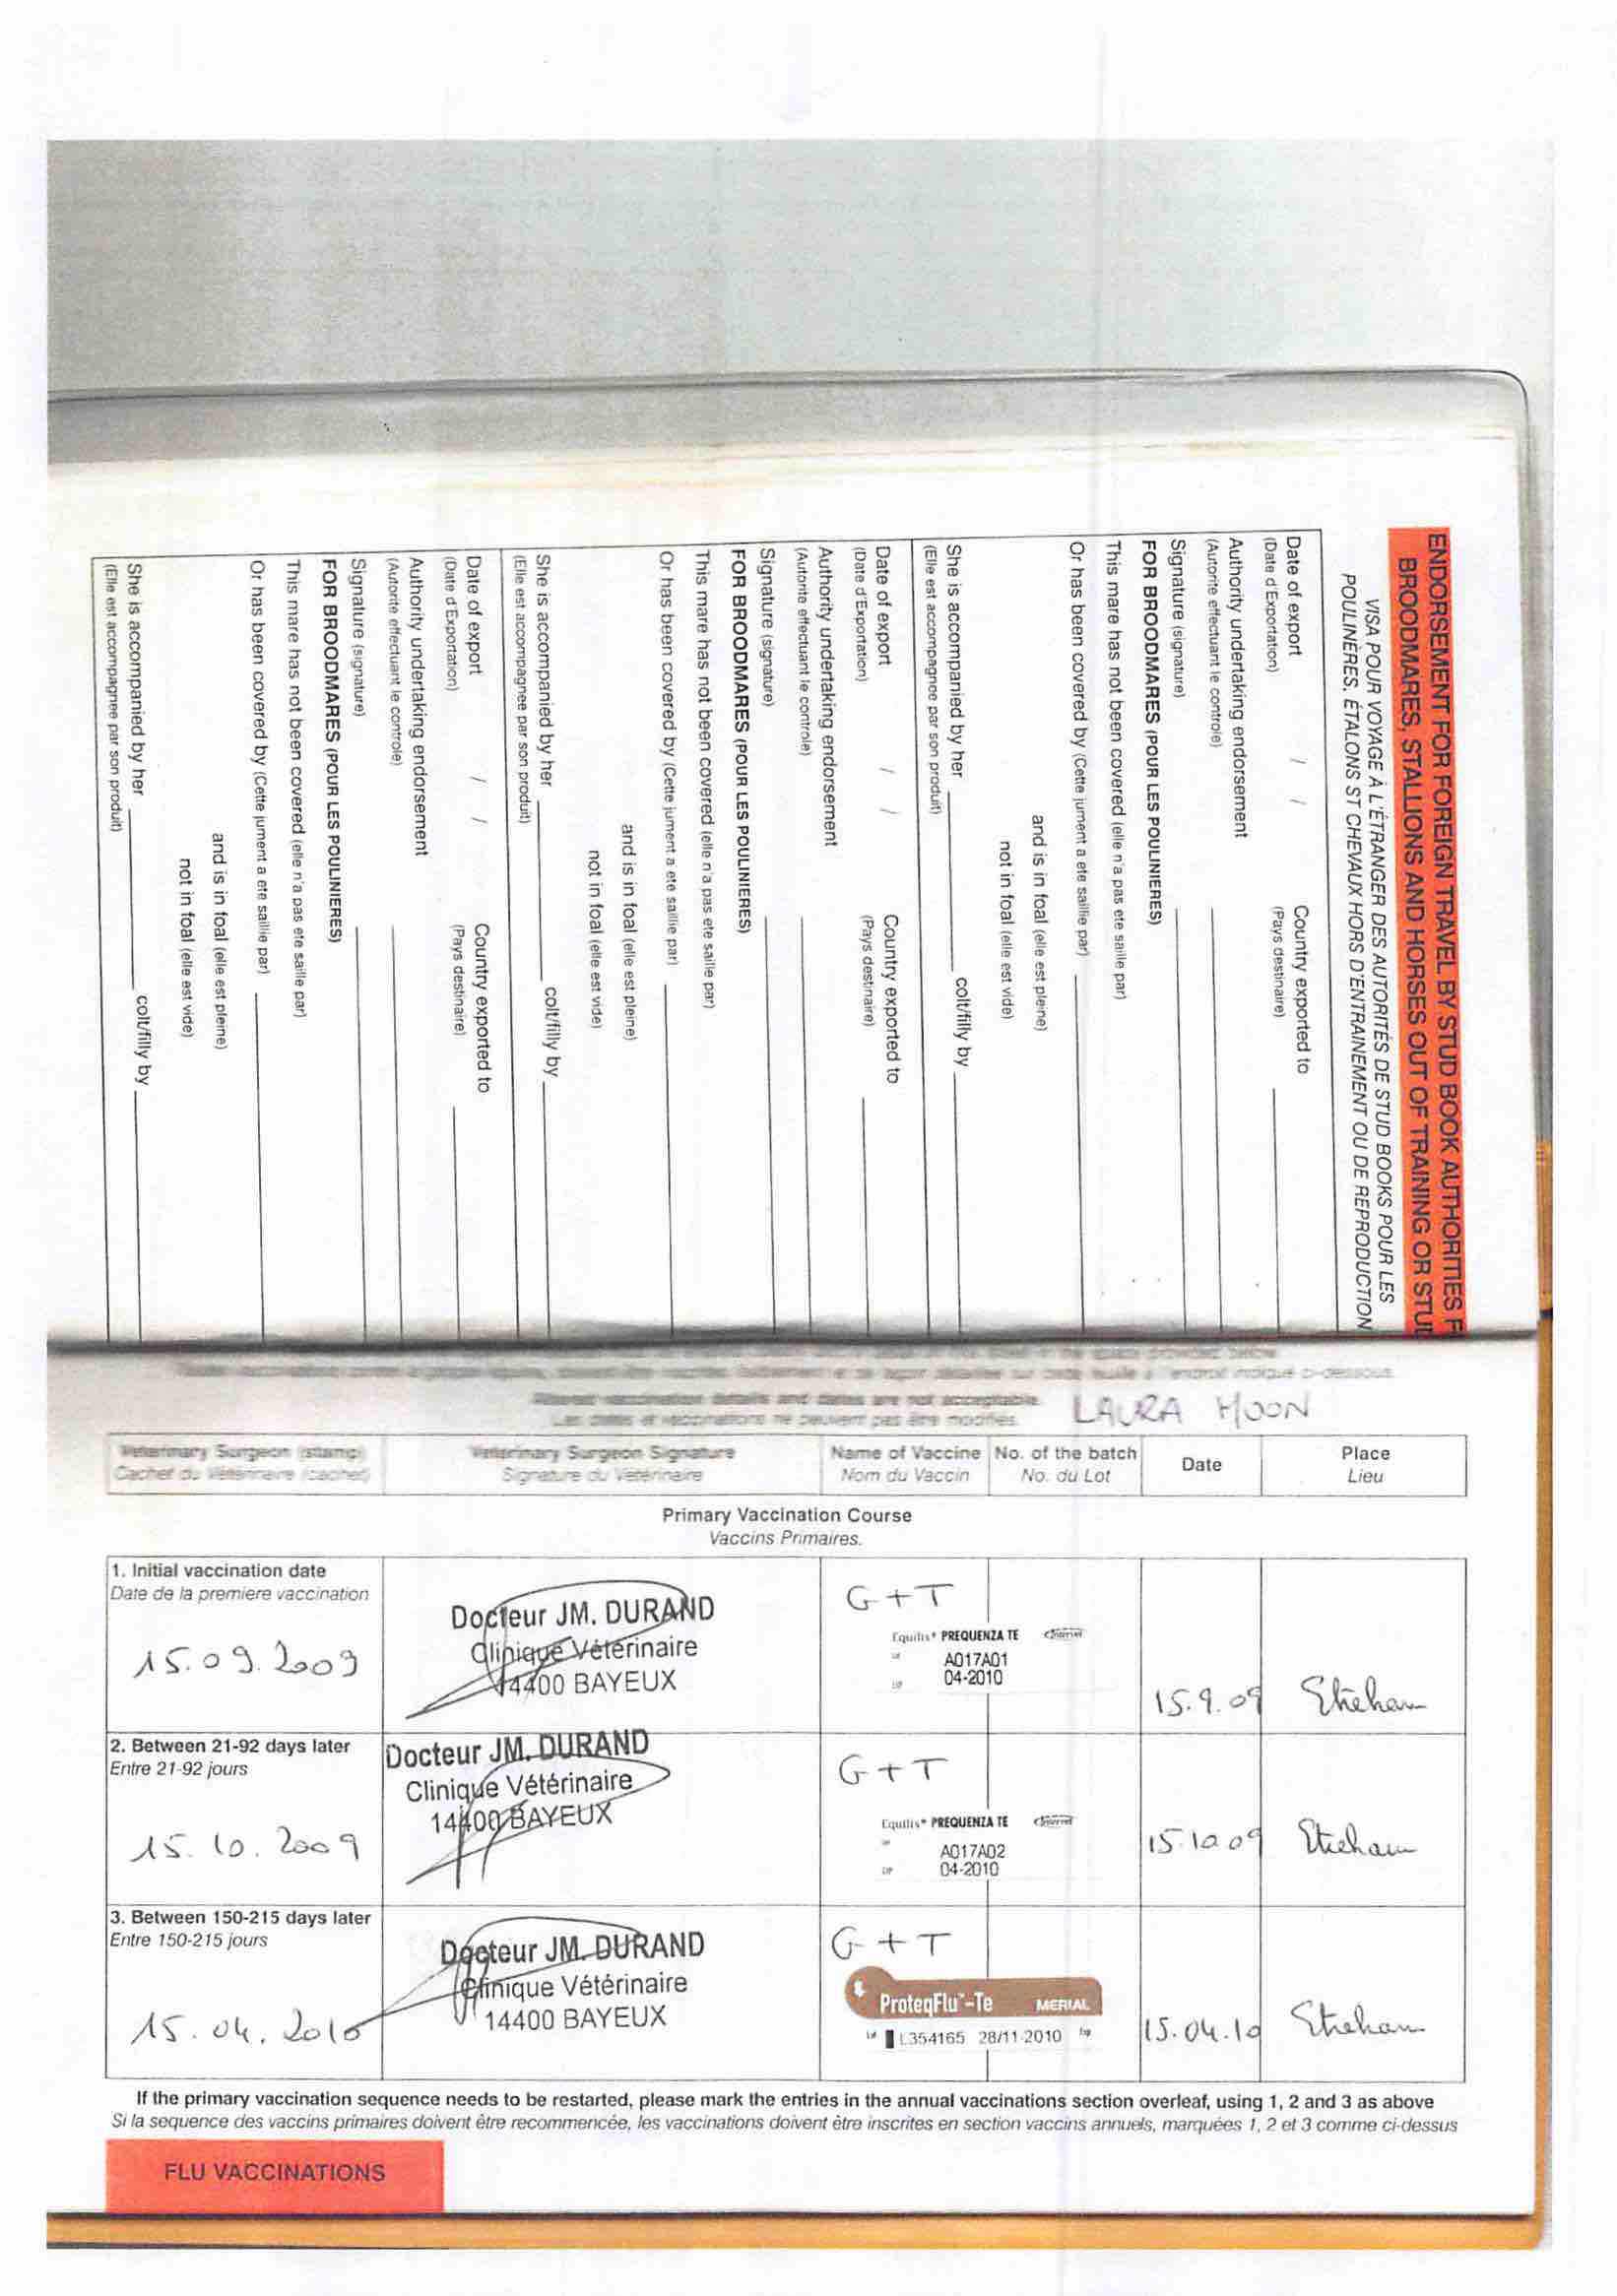 ENDORSEMENT FOR FOREIGN TRAVEL BY STUD BOOK AUTHORITIES F
BROODMARES, STALLIONS AND HORSES OUT OF TRAINING OR STUD
VISA POUR VOYAGE À L'ÉTRANGER DES AUTORITÉS DE STUD BOOKS POUR LES
POULINÈRES, ÉTALONS ST CHEVAUX HORS D'ENTRAINEMENT OU DE REPRODUCTION
Date of export / / Country exported to
(Date d'Exportation) (Pays destinaire)
Authority undertaking endorsement
(Autorite effectuant le controle)
Signature (signature)
FOR BROODMARES (POUR LES POULINIERES)
This mare has not been covered (elle n'a pas ete saille par)
Or has been covered by (Cette jument a ete saillie par)
and is in foal (elle est pleine)
not in foal (elle est vide)
She is accompanied by her colt/filly by
(Elle est accompagnee par son produit)
Date of export / / Country exported to
(Date d'Exportation) (Pays destinaire)
Authority undertaking endorsement
(Autorite effectuant le controle)
Signature (signature)
FOR BROODMARES (POUR LES POULINIERES)
This mare has not been covered (elle n'a pas ete saille par)
Or has been covered by (Cette jument a ete saillie par)
and is in foal (elle est pleine)
not in foal (elle est vide)
She is accompanied by her colt/filly by
(Elle est accompagnee par son produit)
Date of export / / Country exported to
(Date d'Exportation) (Pays destinaire)
Authority undertaking endorsement
(Autorite effectuant le controle)
Signature (signature)
FOR BROODMARES (POUR LES POULINIERES)
This mare has not been covered (elle n'a pas ete saille par)
Or has been covered by (Cette jument a ete saillie par)
and is in foal (elle est pleine)
not in foal (elle est vide)
She is accompanied by her colt/filly by
(Elle est accompagnee par son produit)
vaccination details and dates are not acceptable
Les dates et vaccinations ne peuvent pas être modifies.
LAURA MOON
Veterinary Surgeon (stamp) Veterinary Surgeon Signature Name of Vaccine No. of the batch Date Place
Cachet du Vétérinaire (cachet) Signature du Vétérinaire Nom du Vaccin No. du Lot Lieu
Primary Vaccination Course
Vaccins Primaires.
1. Initial vaccination date
Date de la premiere vaccination
15.09.2009
Docteur JM. DURAND
Clinique Vétérinaire
14400 BAYEUX
G+T
Equilis* PREQUENZA TE Intervet
A017A01
04-2010
15.9.09 Etreham
2. Between 21-92 days later
Entre 21-92 jours
15.10.2009
Docteur JM. DURAND
Clinique Vétérinaire
14400 BAYEUX
G+T
Equilis* PREQUENZA TE Intervet
A017A02
04-2010
15.10.09 Etreham
3. Between 150-215 days later
Entre 150-215 jours
15.04.2010
Docteur JM. DURAND
Clinique Vétérinaire
14400 BAYEUX
G+T
ProteqFlu™-Te MERIAL
L354165 28/11-2010
15.04.10 Etreham
If the primary vaccination sequence needs to be restarted, please mark the entries in the annual vaccinations section overleaf, using 1, 2 and 3 as above
Si la sequence des vaccins primaires doivent être recommencée, les vaccinations doivent être inscrites en section vaccins annuels, marquées 1, 2 et 3 comme ci-dessus
FLU VACCINATIONS